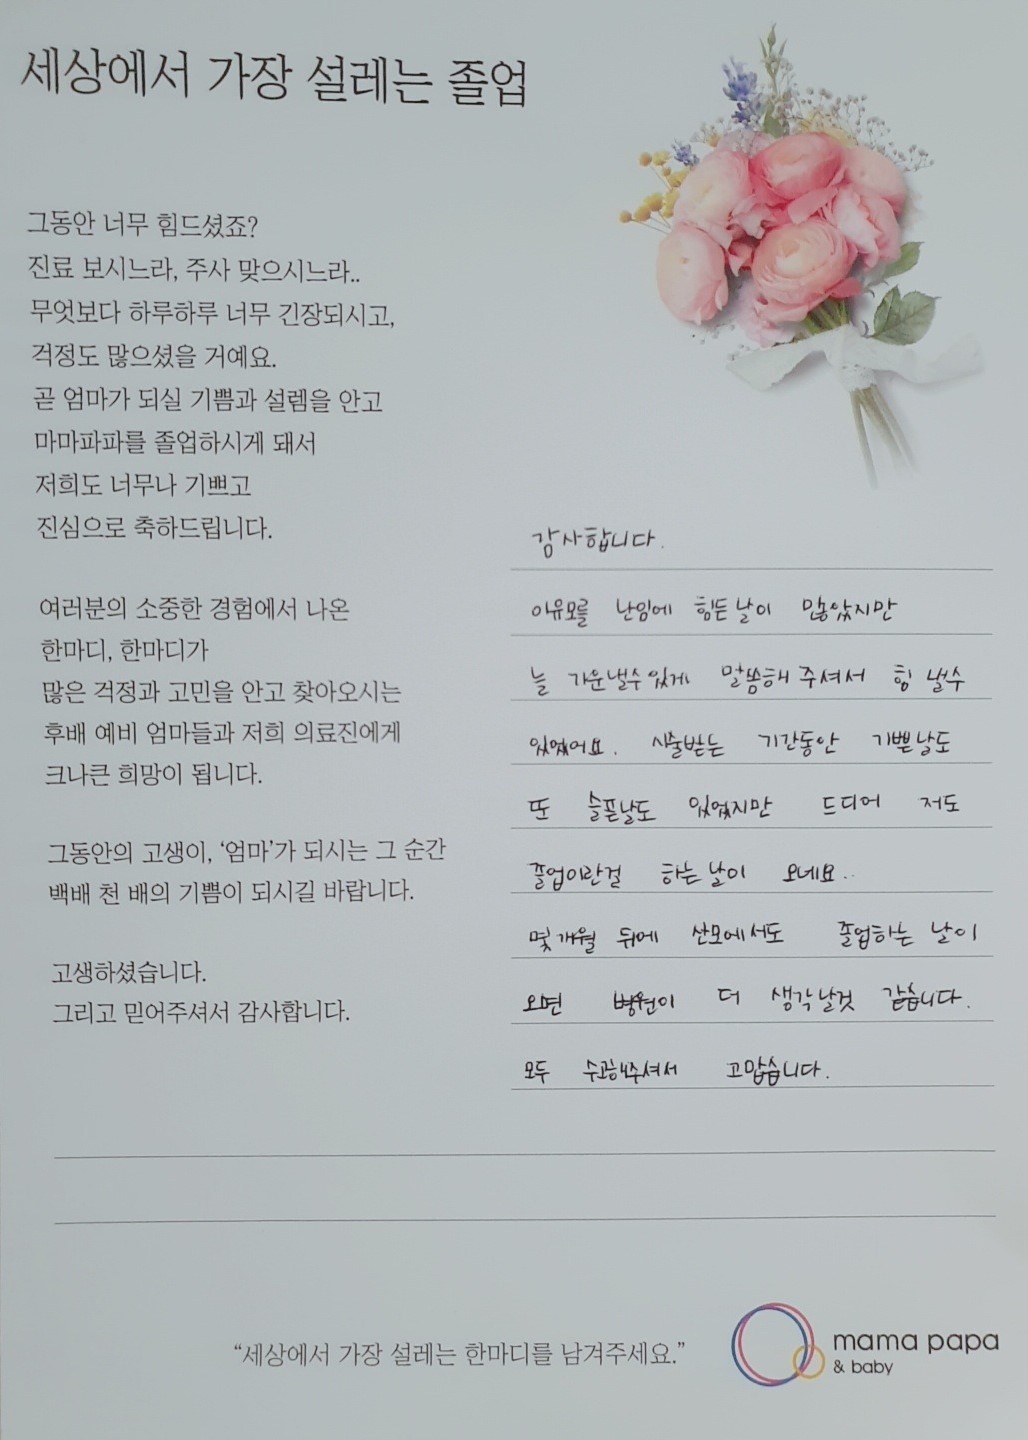 세상에서 가장 설레는 졸업
그동안 너무 힘드셨죠?
진료 보시느라, 주사 맞으시느라..
무엇보다 하루하루 너무 긴장되시고,
걱정도 많으셨을 거예요.
곧 엄마가 되실 기쁨과 설렘을 안고
마마파파를 졸업하시게 돼서
저희도 너무나 기쁘고
진심으로 축하드립니다.
여러분의 소중한 경험에서 나온
한마디, 한마디가
많은 걱정과 고민을 안고 찾아오시는
후배 예비 엄마들과 저희 의료진에게
크나큰 희망이 됩니다.
그동안의 고생이, ‘엄마’가 되시는 그 순간
백배 천 배의 기쁨이 되시길 바랍니다.
고생하셨습니다.
그리고 믿어주셔서 감사합니다.
감사합니다.
이유모를 난임에 힘든 날이 많았지만
늘 기운낼수있게 말씀해 주셔서 힘 낼수
있었어요. 시술받는 기간동안 기쁜날도
또 슬픈날도 있었지만 드디어 저도
졸업이란걸 하는 날이 오네요..
몇개월 뒤에 산모에서도 졸업하는 날이
오면 병원이 더 생각날것 같습니다.
모두 수고해주셔서 고맙습니다.
“세상에서 가장 설레는 한마디를 남겨주세요.”
mama papa
& baby